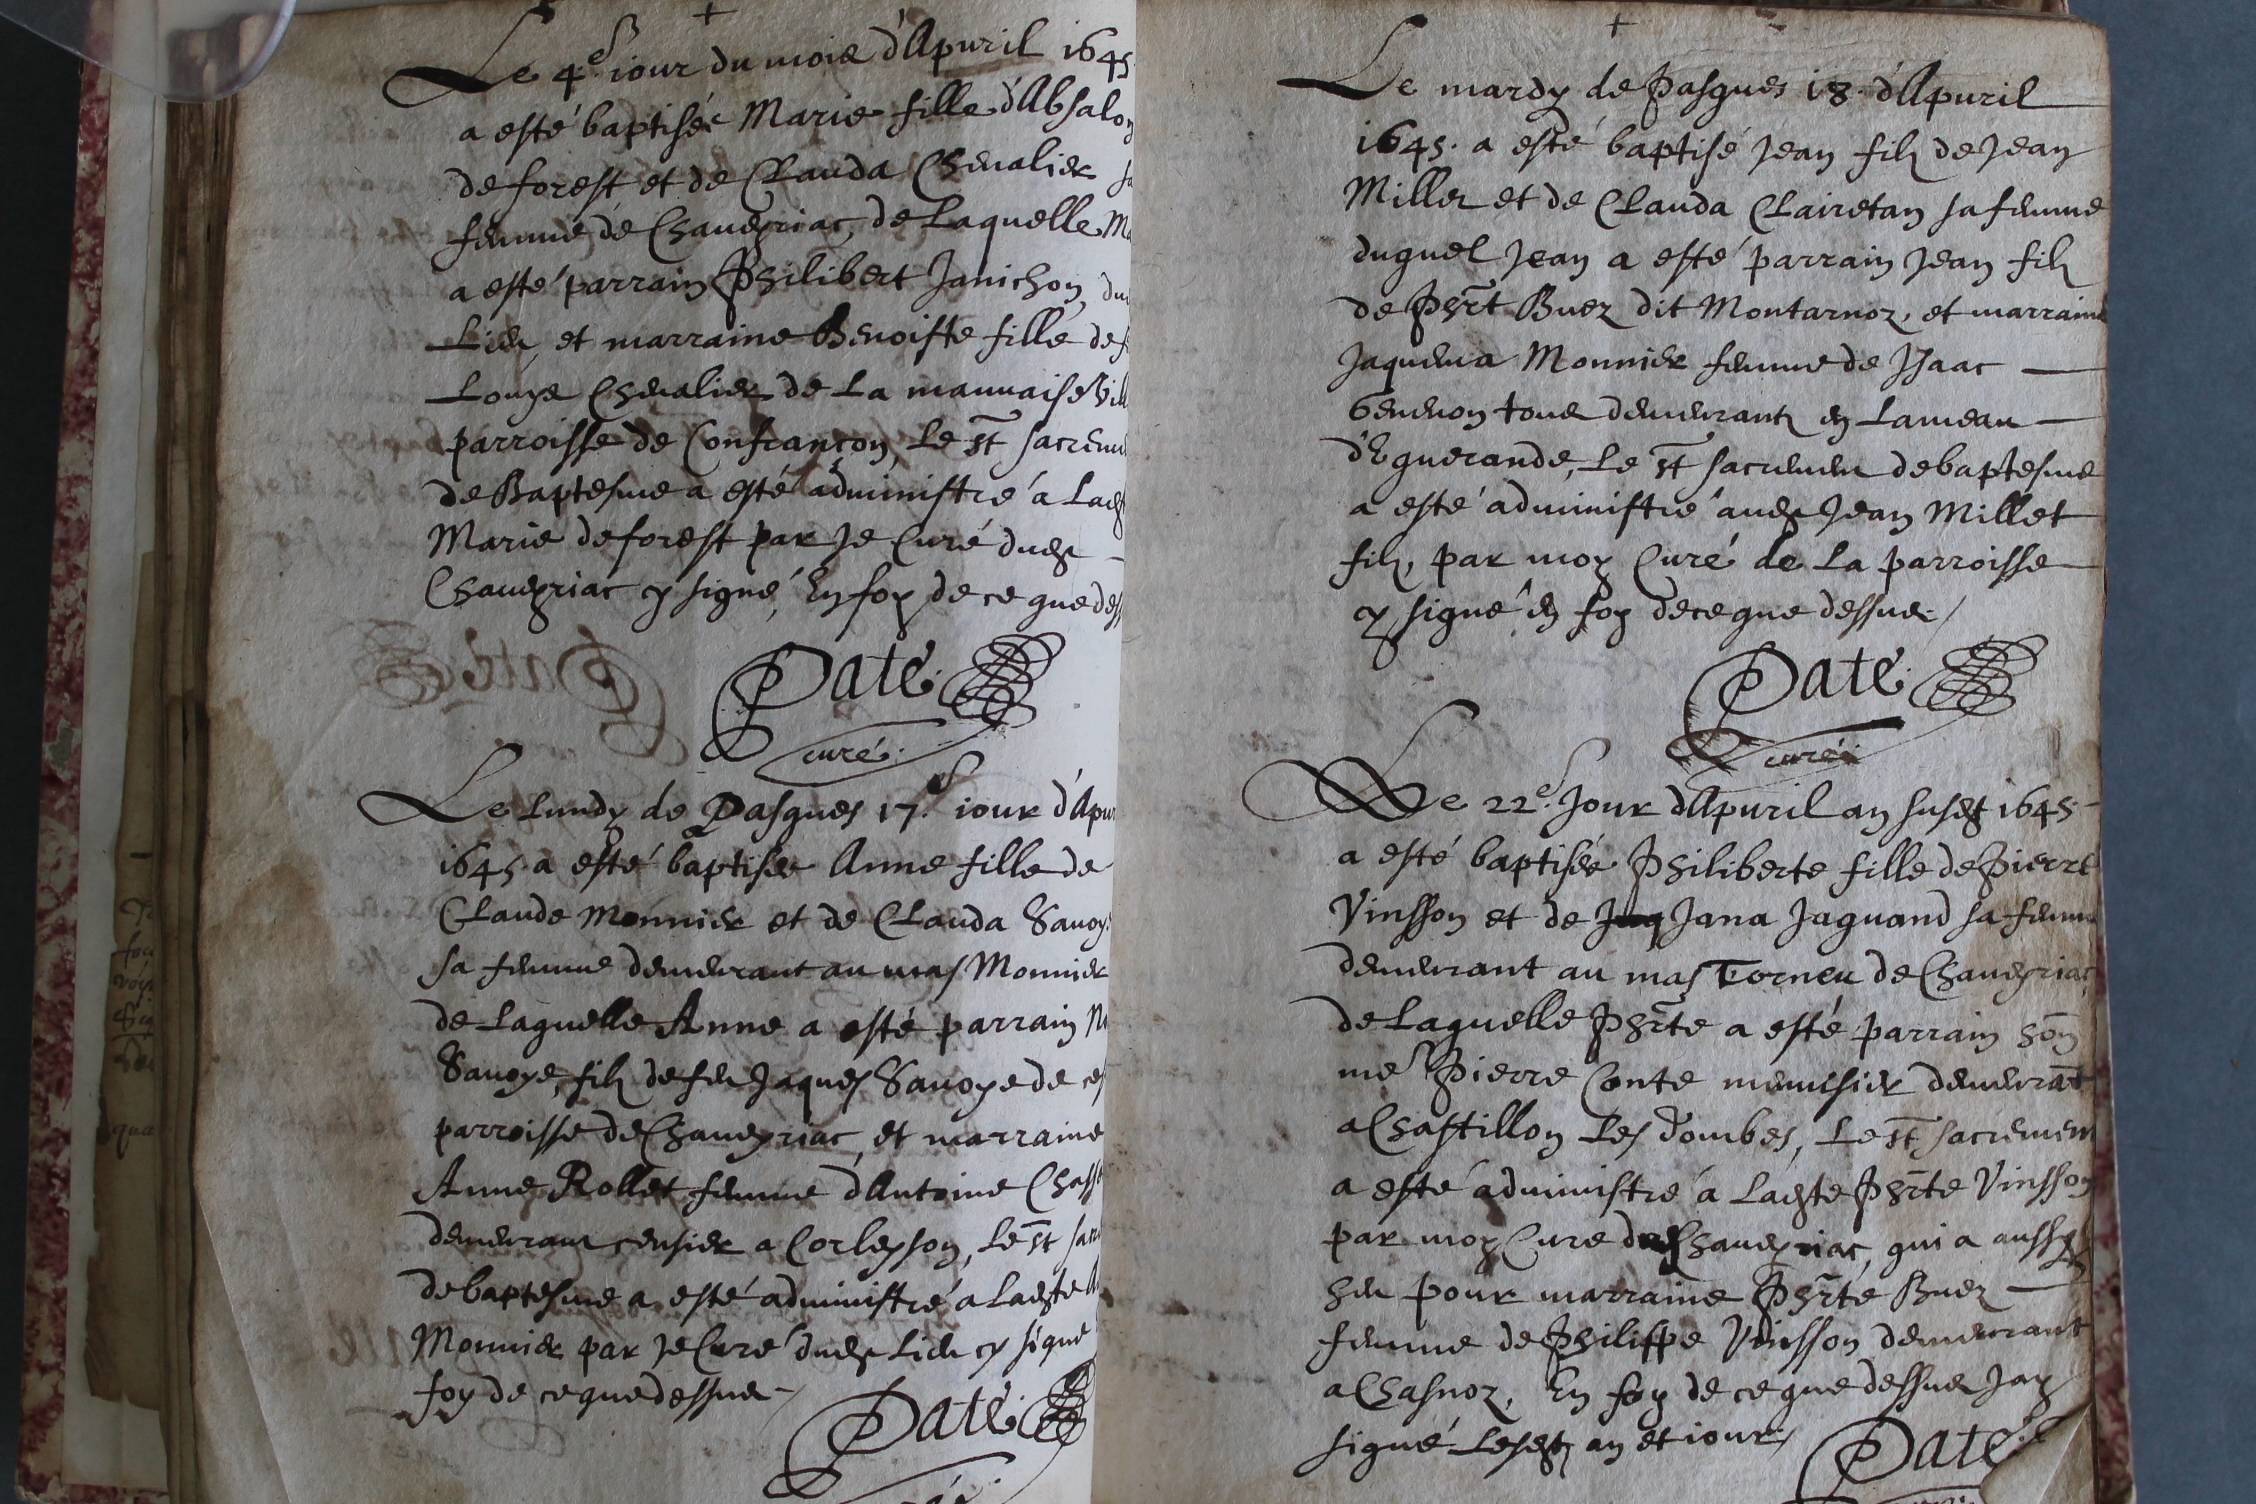 +
Le 4e. iour du mois d'Apuril 1645
a esté baptisée Marie fille d'Absalon
deforest et de Clauda Cheualier
femme de Chaueyriac, de Laquelle
a esté parrain Philibert Janichon
Lieu, et marraine Benoiste fille de
Louys Cheualier de La mauuaise
parroisse de Confrançon, Le st
de Baptesme a esté administré a
Marie deforest par Je Curé dudt
Chaueyriac cy signé, En foy de ce que
Paté.
curé.
Le Lundy de Pasques 17e. iour
1645. a esté baptisée Anne fille de
Claude Monnier et de Clauda
sa femme demeurant au mas Monnier
de Laquelle Anne a esté parrain
Sauoye, filz de feu Jaques Sauoye de
parroisse de Chaueyriac, et marraine
Anne Rollet femme d'Antoine
demeurant censier a Corleyson, Le st
de baptesme a esté administré a Ladte
Monnier par Je Curé dudt Lieu cy signé
foy de ce que dessus
Paté.
+
Le mardy de Pasques 18. d'Apuril
1645. a esté baptisé Jean filz de Jean
Millet et de Clauda Clairetan sa femme
duquel Jean a esté parrain Jean filz
de Phrt Buez dit Montarnoz, et marraine
Jaquema Monnier femme de Isaac
Geneuon tous demeurantz en Lameau
d'Eguerande, Le st sacremen de baptesme
a esté administré audt Jean Millet
filz, par moy Curé de La parroisse
cy signé en foy de ce que dessus./
Paté.
curé.
Le 22e. Jour d'Apuril an susdt 1645.
a esté baptisée Philiberte fille de Pierre
Vinsson et de Jana Jaguand sa femme
demeurant au mas Torneu de Chaueyriac,
de Laquelle Phrte a esté parrain hon
me Pierre Conte menuisier demeurāt
a Chastillon Les dombes, Le st sacremen
a esté administré a Ladte Phrte Vinsson
par moy Curé de Chaueyriac, qui a aussy
heu pour marraine Phrte Buez
femme de Philippe Vinsson demeurant
a Chasnoz, En foy de ce que dessus Jay
signé Lesdtz an et iour./
Paté.